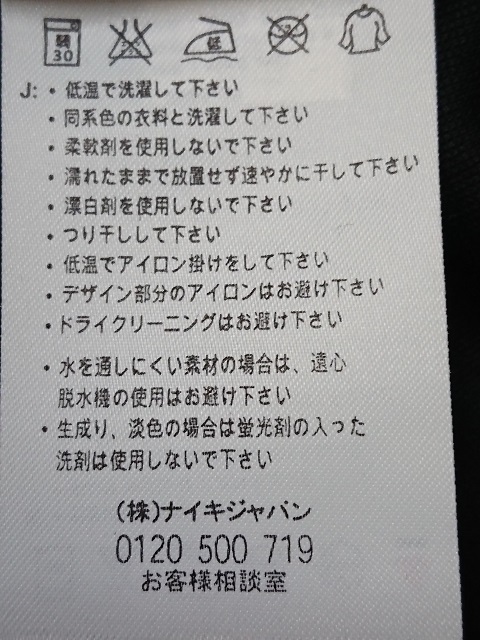 弱
30
低
J: ・低温で洗濯して下さい
・同系色の衣料と洗濯して下さい
・柔軟剤を使用しないで下さい
・濡れたままで放置せず速やかに干して下さい
・漂白剤を使用しないで下さい
・つり干しして下さい
・低温でアイロン掛けをして下さい
・デザイン部分のアイロンはお避け下さい
・ドライクリーニングはお避け下さい
・水を通しにくい素材の場合は、遠心
脱水機の使用はお避け下さい
・生成り、淡色の場合は蛍光剤の入った
洗剤は使用しないで下さい
(株)ナイキジャパン
0120 500 719
お客様相談室